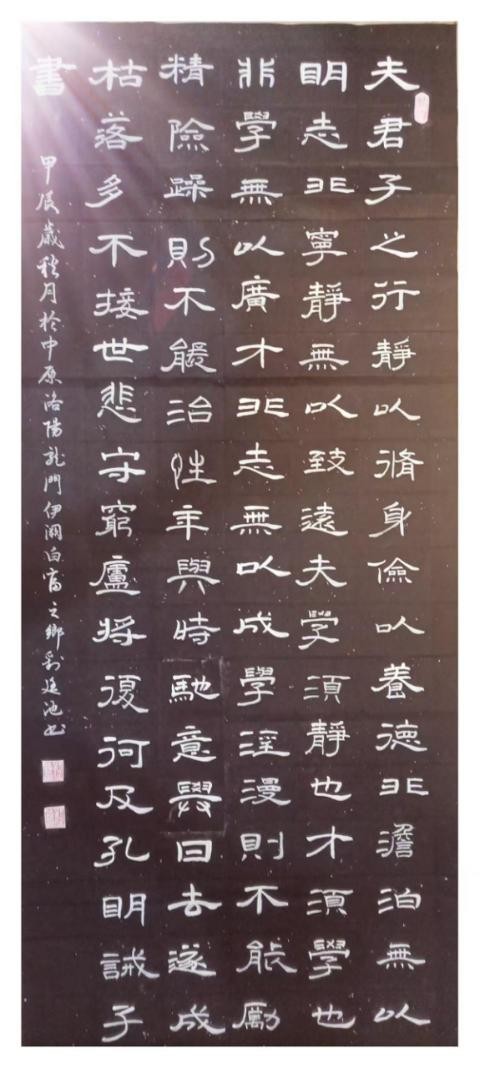 夫君子之行靜以脩身儉以養德非澹泊無以
明志非寧靜無以致遠夫學須靜也才須學也
非學無以廣才非志無以成學淫漫則不能勵
精險躁則不能治性年與時馳意與日去遂成
枯落多不接世悲守窮廬將復何及孔明誡子
書
甲辰歲秋月於中原洛陽龍門伊闕白之鄉廷池书